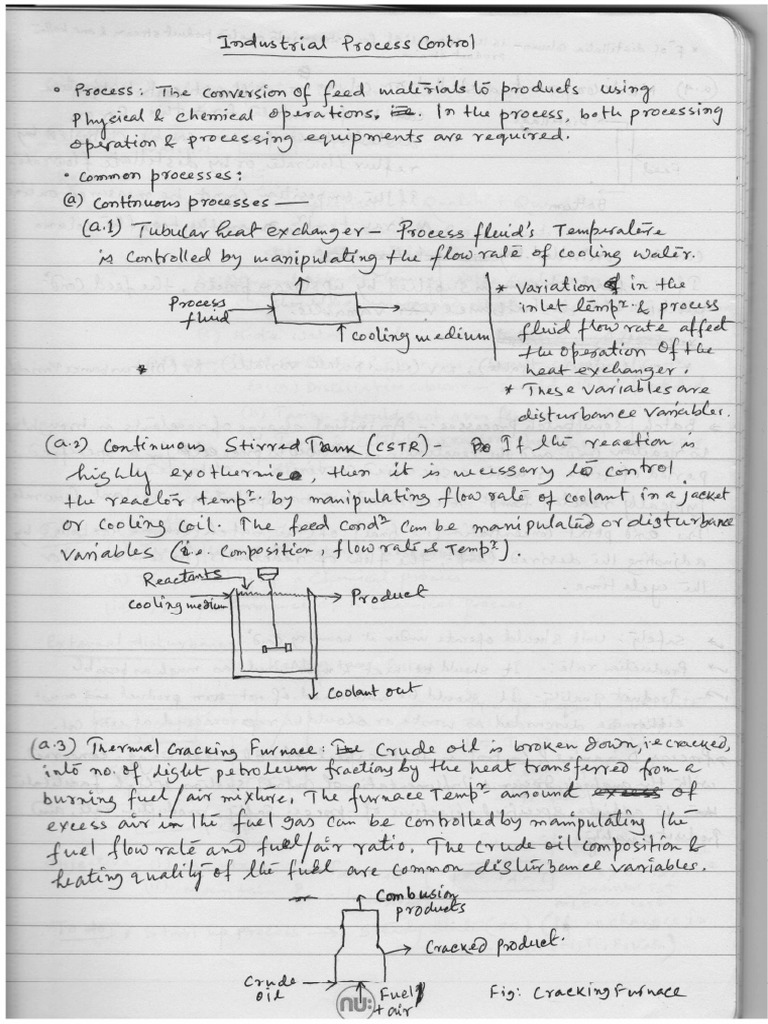 Industrial Process Control
• Process: The conversion of feed materials to products using
Physical & chemical operations. In the process, both processing
operation & processing equipments are required.
• common processes:
(a) continuous processes —
(a.1) Tubular heat exchanger – Process fluid's Temperature
is controlled by manipulating the flow rate of cooling water.
Process
fluid
cooling medium
* variation in the
inlet temp^r. & process
fluid flow rate affect
the operation of the
heat exchanger.
* These variables are
disturbance variables.
*
(a.2) continuous Stirred Tank (CSTR) – If the reaction is
highly exothermic, then it is necessary to control
the reactor temp^r. by manipulating flow rate of coolant in a jacket
or cooling coil. The feed cond^n can be manipulated or disturbance
variables (i.e. composition, flow rate & Temp^r).
Reactants
cooling medium
Product
Coolant out
(a.3) Thermal Cracking Furnace: Crude oil is broken down, i.e cracked,
into no. of light petroleum fractions by the heat transferred from a
burning fuel/air mixture. The furnace Temp^r amount of
excess air in the fuel gas can be controlled by manipulating the
fuel flow rate and fuel/air ratio. The crude oil composition &
heating quality of the fuel are common disturbance variables.
Combusion
products
Cracked product.
Crude
oil
Fuel
+ air
nu:
Fig: Cracking Furnace